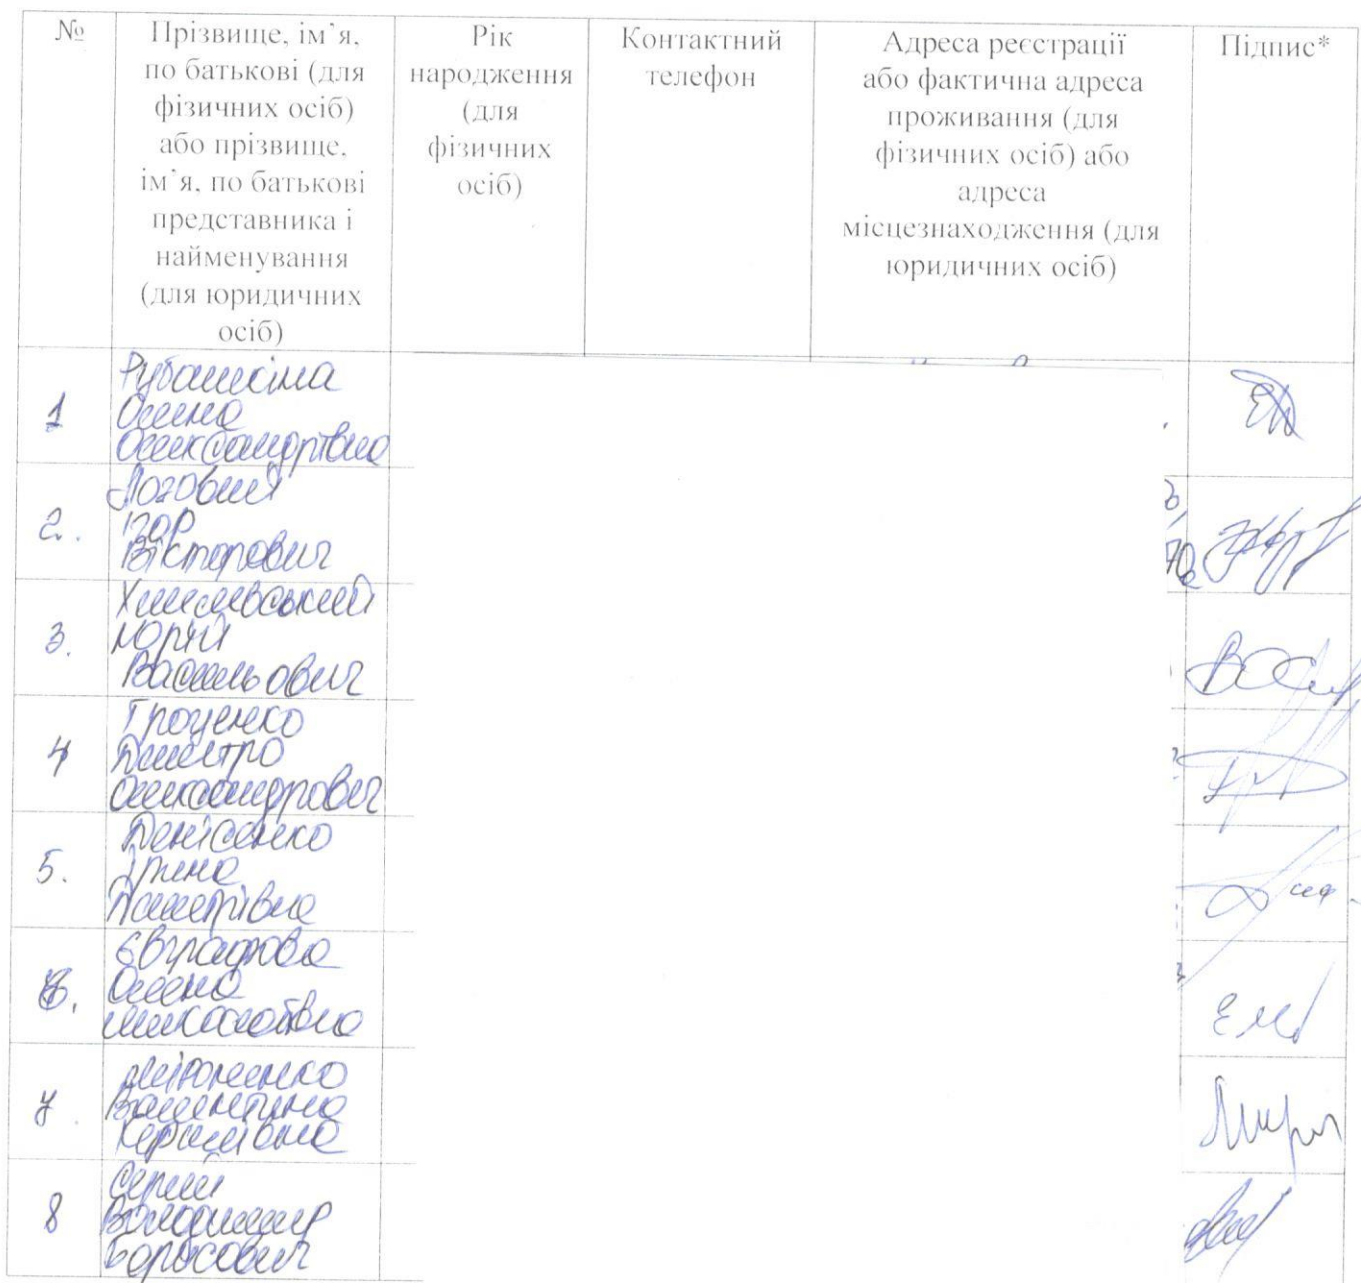 №
Прізвище, ім`я,
по батькові (для
фізичних осіб)
або прізвище,
ім`я, по батькові
представника і
найменування
(для юридичних
осіб)
Рік
народження
(для
фізичних
осіб)
Контактний
телефон
Адреса реєстрації
або фактична адреса
проживання (для
фізичних осіб) або
адреса
місцезнаходження (для
юридичних осіб)
Підпис*
1
Рубашкіна
Олена
Олександрівна
2.
Логовий
Ігор
Вікторович
3.
Хмілевський
Юрій
Васильович
4
Троценко
Дмитро
Олександрович
5.
Денісенко
Ірина
Дмитрівна
6.
Євграфова
Олена
Миколаївна
7.
Валентина
8
Серий
Володимир
Борисович